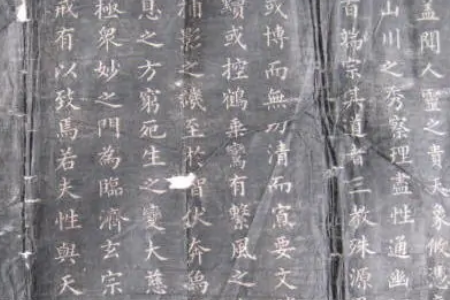 蓋聞人靈之貴天象攸憑
山川之秀察理盡性通幽
百端宗其道者三教殊源
或博而無功清而寡要文
或控鶴乘鸞有繫風之
捕影之譏至於智伏奔
息之方窮死生之變大慈
極衆妙之門為臨濟玄宗
戒有以致焉若夫性與天